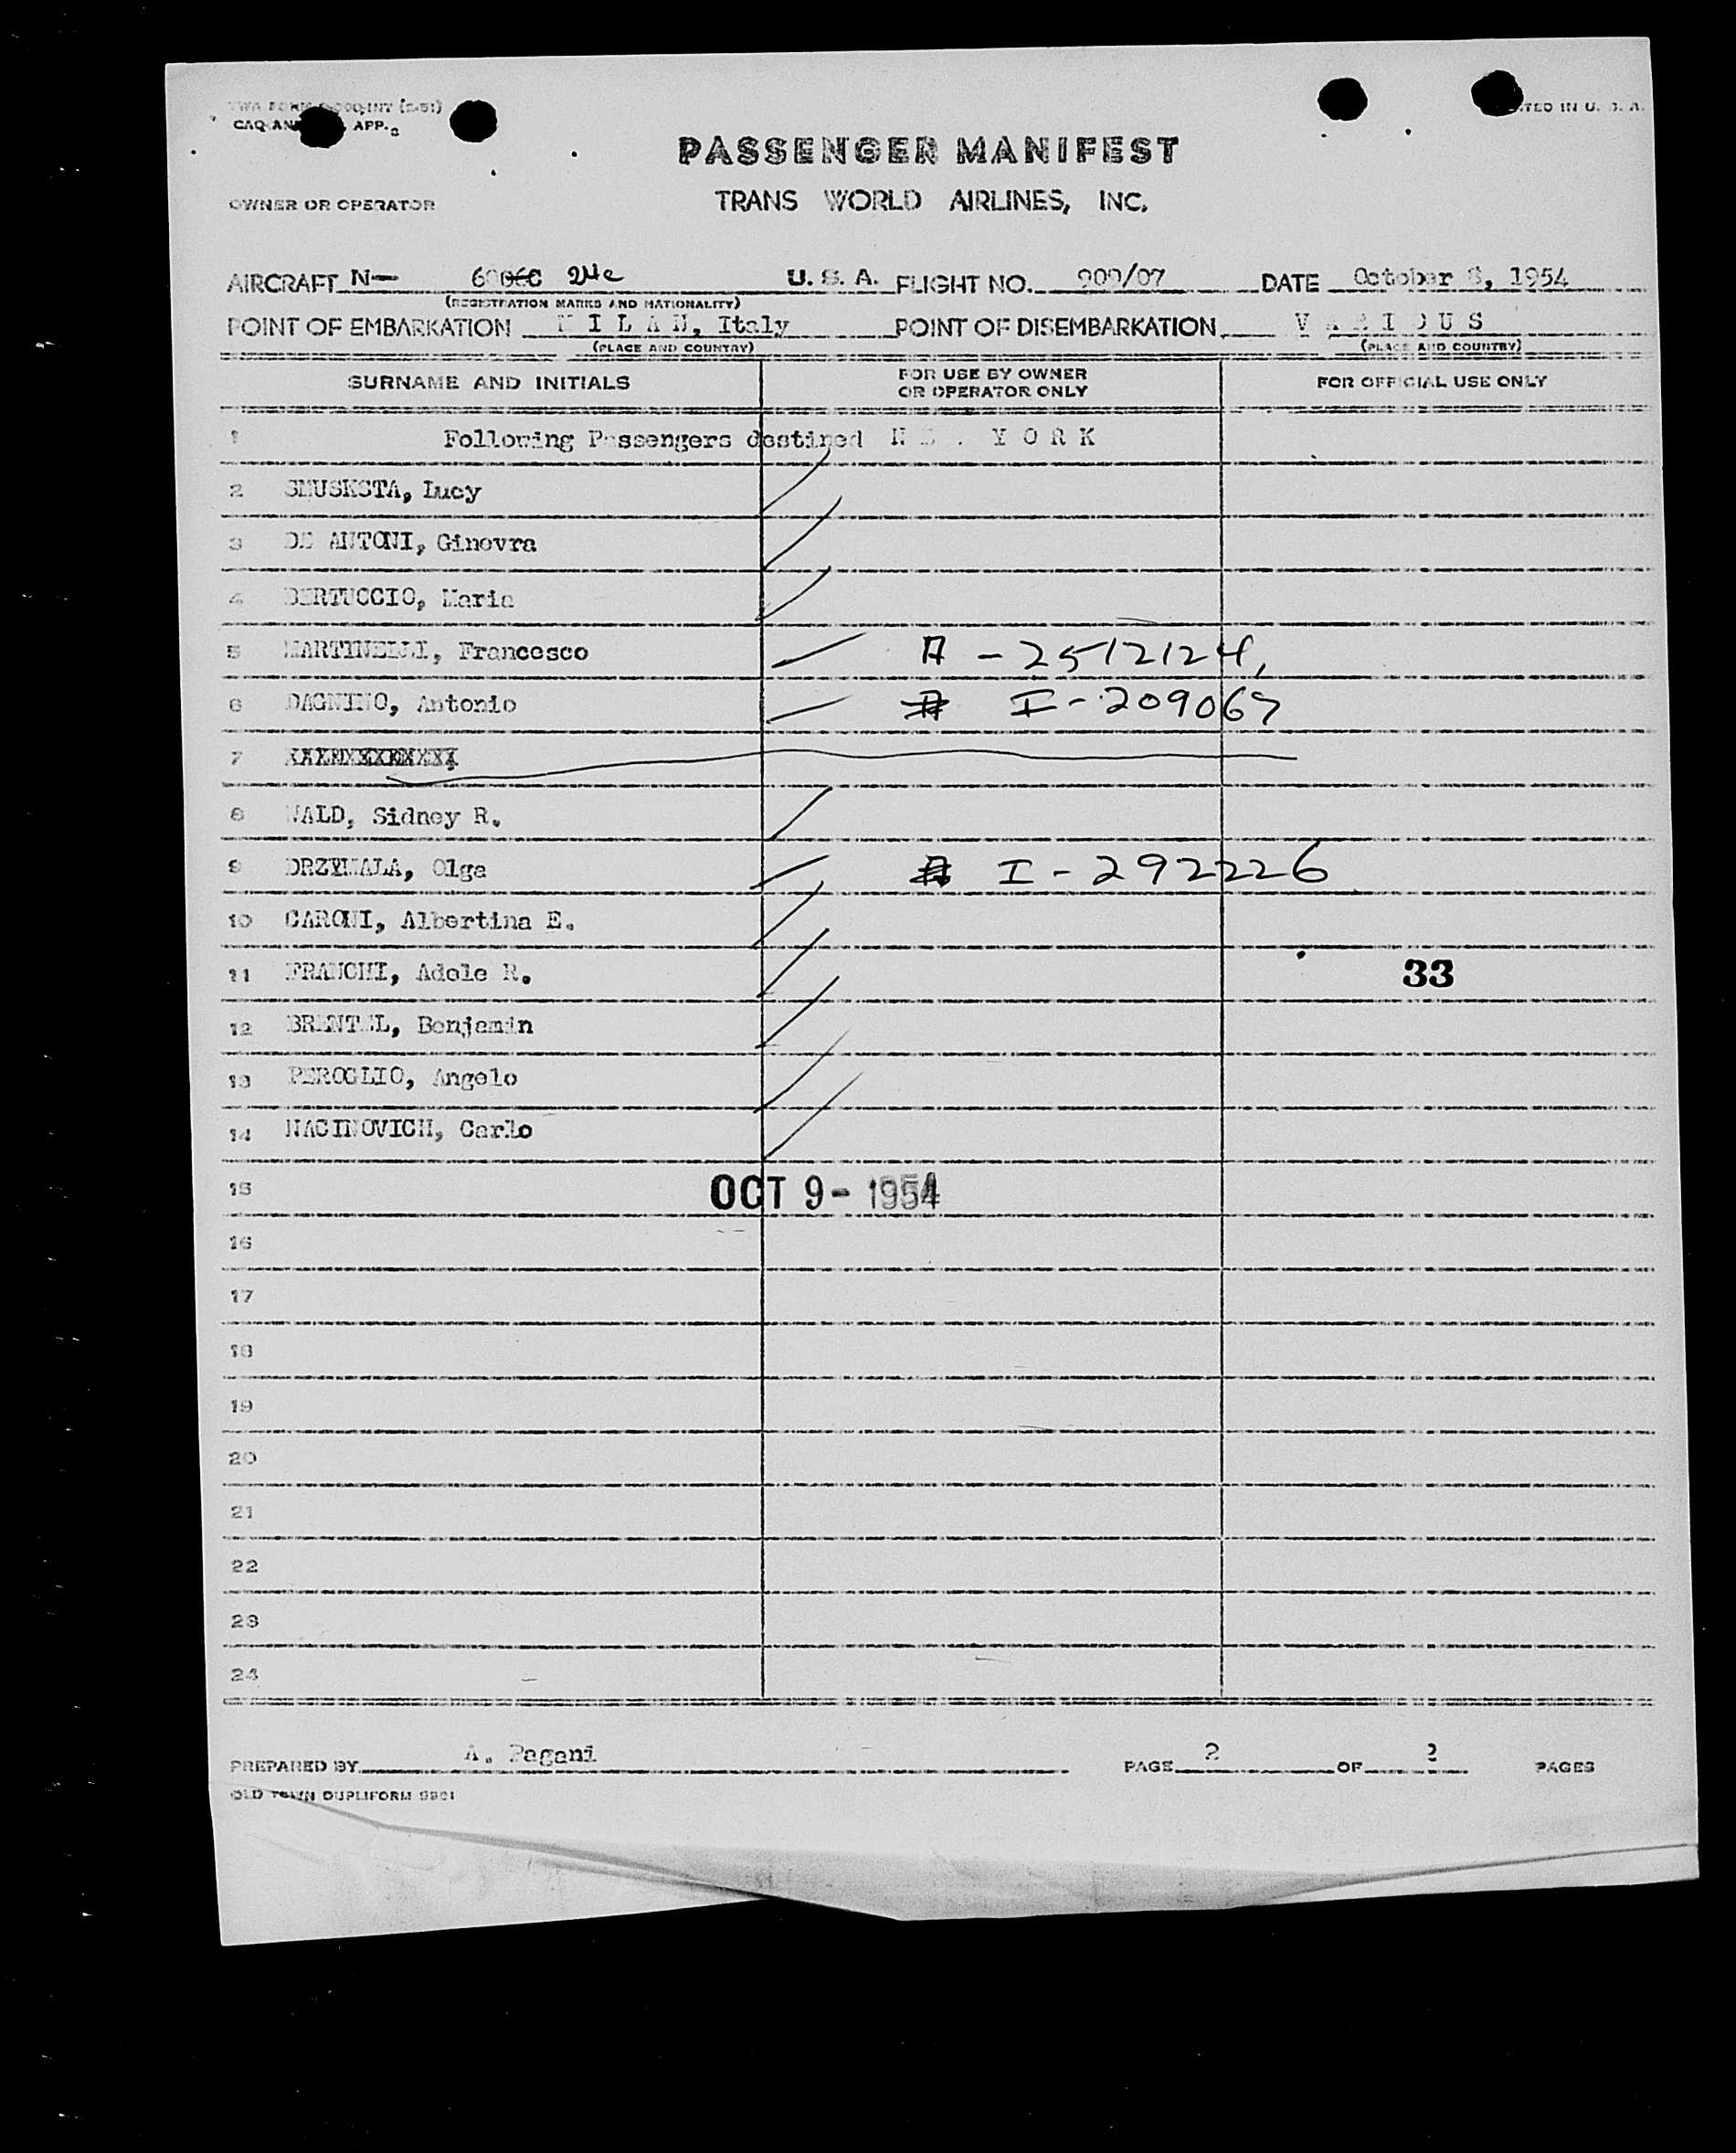 TWA FORM
CAQ AN APP.
PRINTED IN U. S. A.
PASSENGER MANIFEST
OWNER OR OPERATOR TRANS WORLD AIRLINES, INC.
AIRCRAFT N— U. S. A. FLIGHT NO. 909/07 DATE October 8, 1954
(REGISTRATION MARKS AND NATIONALITY)
POINT OF EMBARKATION M I L A N, Italy POINT OF DISEMBARKATION V A R I O U S
(PLACE AND COUNTRY) (PLACE AND COUNTRY)
SURNAME AND INITIALS FOR USE BY OWNER OR OPERATOR ONLY FOR OFFICIAL USE ONLY
1 Following Passengers destined N E W Y O R K
2 SMUSKSTA, Lucy
3 DE ANTONI, Ginevra
4 BERTUCCIO, Maria
5 MARTINELLI, Francesco A - 2512124,
6 DAGNINO, Antonio I - 209067
7
8 WALD, Sidney R.
9 DRZYMALA, Olga I - 292226
10 CARONI, Albertina E.
11 FRANCHI, Adele R. 33
12 BRENTEL, Benjamin
13 PEROGLIO, Angelo
14 NACINOVICH, Carlo
15 OCT 9 - 1954
16
17
18
19
20
21
22
23
24
PREPARED BY A. Pagani PAGE 2 OF 2 PAGES
OLD TOWN DUPLIFORM 9901